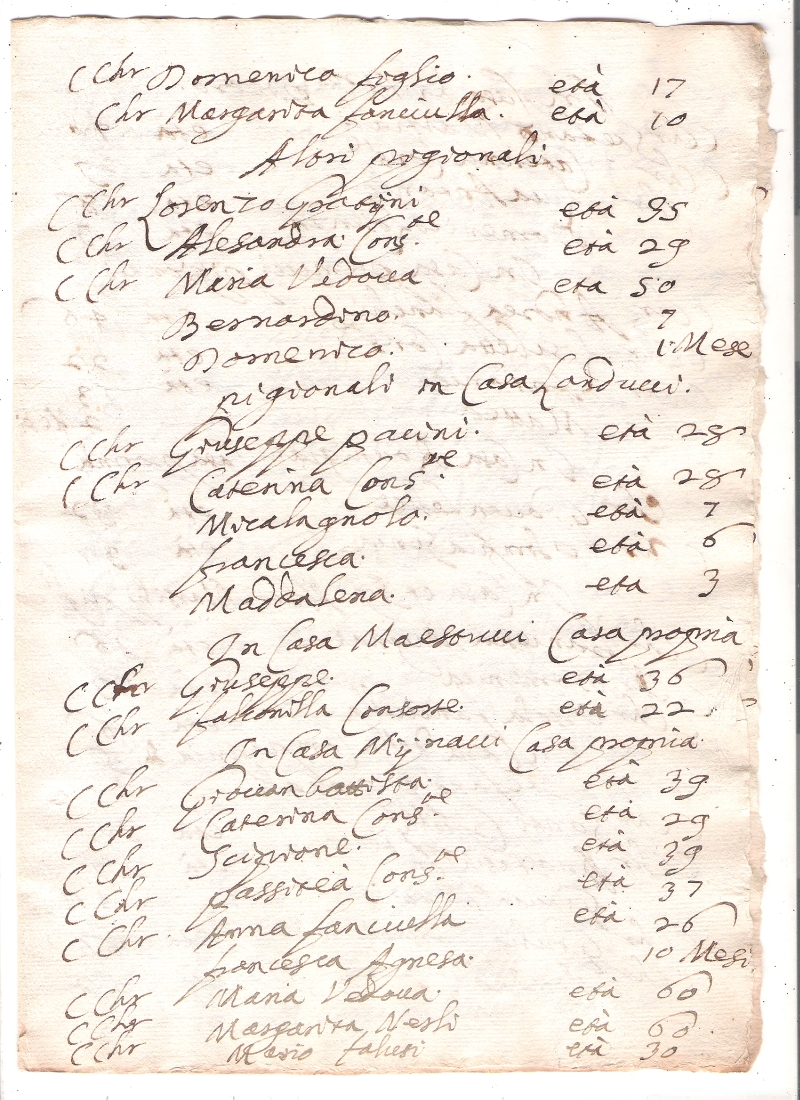 C Chr Domenico figlio. età 17
Chr Margarita fanciulla. età 10
Altri pigionali
C Chr Lorenzo età 35
C Chr Alesandra Cons.te età 29
C Chr Maria Vedova eta 50
Bernardino. 7
Domenico. 1 Mese
pigionali in Casa Landucci.
C Chr Giuseppe pacini. età 28
C Chr Caterina Cons.te età 28
Micalagnolo. età 7
francesca. età 6
Maddalena. eta 3
In Casa Maestrucci Casa propria
C Chr Giuseppe. età 36
C Chr falconilla Consorte. età 22
In Casa Casa propria
C Chr Giovan battista. età 39
C Chr Caterina Cons.te età 29
C Chr Scipione. età 39
C Chr Passitea Cons.te età 37
C Chr Anna fanciulla età 26
francesca Agnesa. 10 Mesi
C Chr Maria Vedova. età 60
C Chr Margarita Nerli età 60.
C Chr Mario età 30